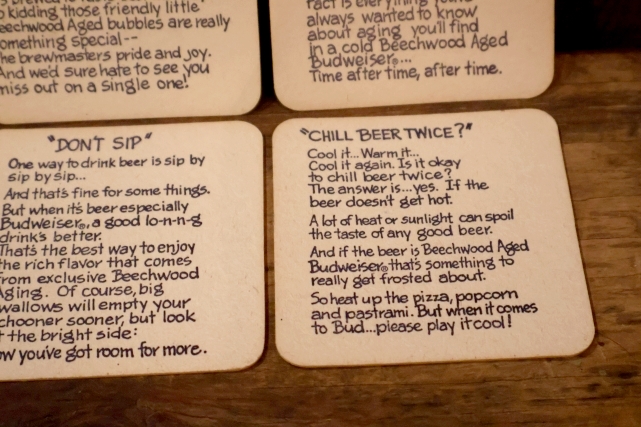 o kidding those friendly little
eechwood Aged bubbles are really
omething special--
he brewmasters pride and joy.
And we'd sure hate to see you
miss out on a single one!
fact is everything you've
always wanted to know
about aging you'll find
in a cold Beechwood Aged
Budweiser®...
Time after time, after time.
"DON'T SIP"
One way to drink beer is sip by
sip by sip...
And that's fine for some things.
But when it's beer especially
Budweiser®, a good lo-n-n-g
drink's better.
That's the best way to enjoy
the rich flavor that comes
from exclusive Beechwood
Aging. Of course, big
wallows will empty your
chooner sooner, but look
t the bright side:
ow you've got room for more.
"CHILL BEER TWICE?"
Cool it... Warm it...
Cool it again. Is it okay
to chill beer twice?
The answer is...yes. If the
beer doesn't get hot.
A lot of heat or sunlight can spoil
the taste of any good beer.
And if the beer is Beechwood Aged
Budweiser® that's something to
really get frosted about.
So heat up the pizza, popcorn
and pastrami. But when it comes
to Bud...please play it cool!